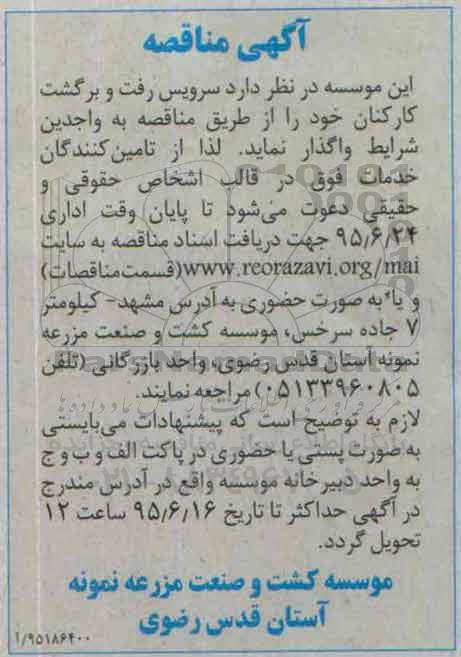 آگهی مناقصه
این موسسه در نظر دارد سرویس رفت و برگشت
کارکنان خود را از طریق مناقصه به واجدین
شرایط واگذار نماید. لذا از تامین‌کنندگان
خدمات فوق در قالب اشخاص حقوقی و
حقیقی دعوت می‌شود تا پایان وقت اداری
۹۵٫۶٫۲۴ جهت دریافت اسناد مناقصه به سایت
www.reorazavi.org/mai(قسمت‌مناقصات)
و یا به صورت حضوری به آدرس مشهد- کیلومتر
۷ جاده سرخس، موسسه کشت و صنعت مزرعه
نمونه آستان قدس رضوی، واحد بازرگانی (تلفن
۰۵۱۳۳۹۶۰۸۰۵) مراجعه نمایند.
لازم به توضیح است که پیشنهادات می‌بایستی
به صورت پستی یا حضوری در پاکت الف و ب و ج
به واحد دبیرخانه موسسه واقع در آدرس مندرج
در آگهی حداکثر تا تاریخ ۹۵٫۶٫۱۶ ساعت ۱۲
تحویل گردد.
موسسه کشت و صنعت مزرعه نمونه
آستان قدس رضوی
۱/۹۵۱۸۶۴۰۰